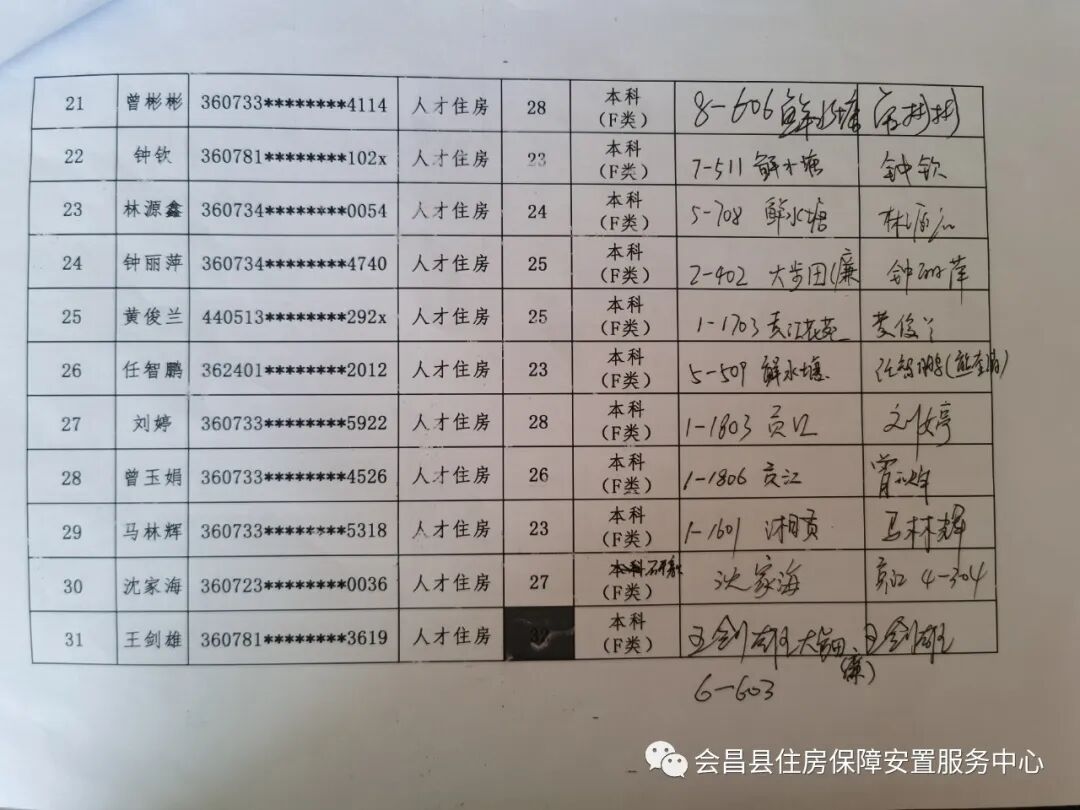 21 曾彬彬 360733********4114 人才住房 28 本科（F类） 8-606 鲜水塘 曾彬彬
22 钟钦 360781********102x 人才住房 23 本科（F类） 7-511 鲜水塘 钟钦
23 林源鑫 360734********0054 人才住房 24 本科（F类） 5-708 鲜水塘 林源鑫
24 钟丽萍 360734********4740 人才住房 25 本科（F类） 2-402 大步田(廉 钟丽萍
25 黄俊兰 440513********292x 人才住房 25 本科（F类） 1-1703 贡江花苑 黄俊兰
26 任智鹏 362401********2012 人才住房 23 本科（F类） 5-509 鲜水塘 任智鹏
27 刘婷 360733********5922 人才住房 28 本科（F类） 1-1803 贡江 刘婷
28 曾玉娟 360733********4526 人才住房 26 本科（F类） 1-1806 贡江 曾玉娟
29 马林辉 360733********5318 人才住房 23 本科（F类） 1-1601 湘贡 马林辉
30 沈家海 360723********0036 人才住房 27 本科（F类） 沈家海 贡江 4-304
31 王剑雄 360781********3619 人才住房 32 本科（F类） 王剑雄 王剑雄
6-603
会昌县住房保障安置服务中心